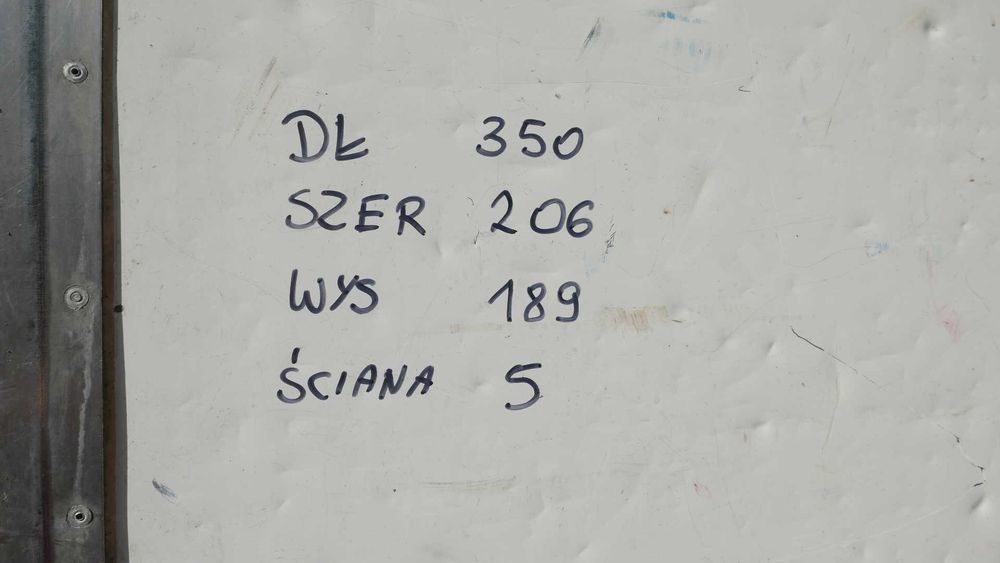 DŁ 350
SZER 206
WYS 189
ŚCIANA 5